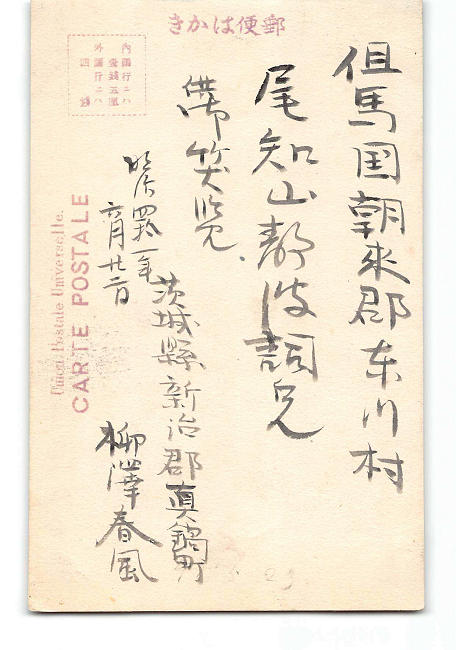 郵便はかき
内國行ニハ
壹錢五厘
外國行ニハ
四錢
Union Postale Universelle.
CARTE POSTALE
但馬国朝来郡东川村
尾知山静波詞兄
供笑览
明治四一年
六月廿二日
茨城縣新治郡真鍋町
柳澤春風